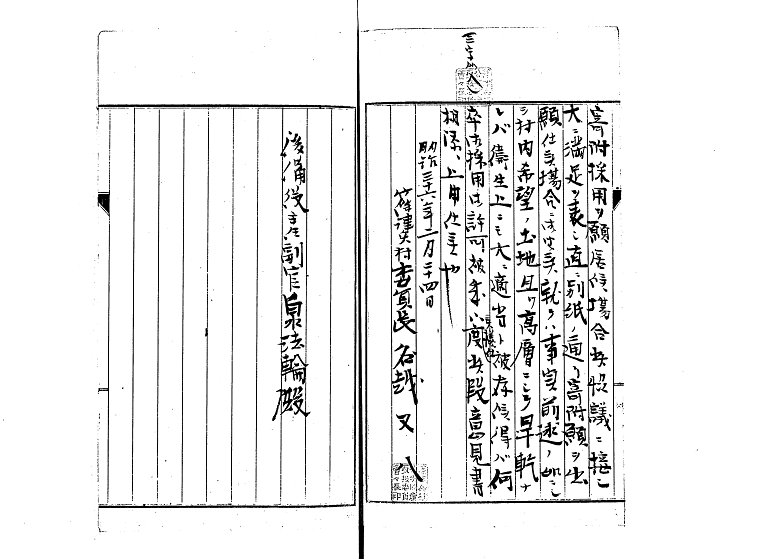 三字加入
寄附採用ヲ願居候場合其協議ニ接シ
大ニ満足ヲ表シ直ニ別紙ノ通リ寄附願ヲ出
願仕候場合ニ御座候就テハ事実前述ノ如シ
村内希望ノ土地且ツ高層ニシテ旱乾ナ
レバ衛生上ニモ大ニ適当ト被存候得バ何
卒御採用御許可被成下度此段意見書
相添ヘ上申仕候也
明治三十六年二月二十四日
村委員長名越又八
後備役主任副官泉法輪殿